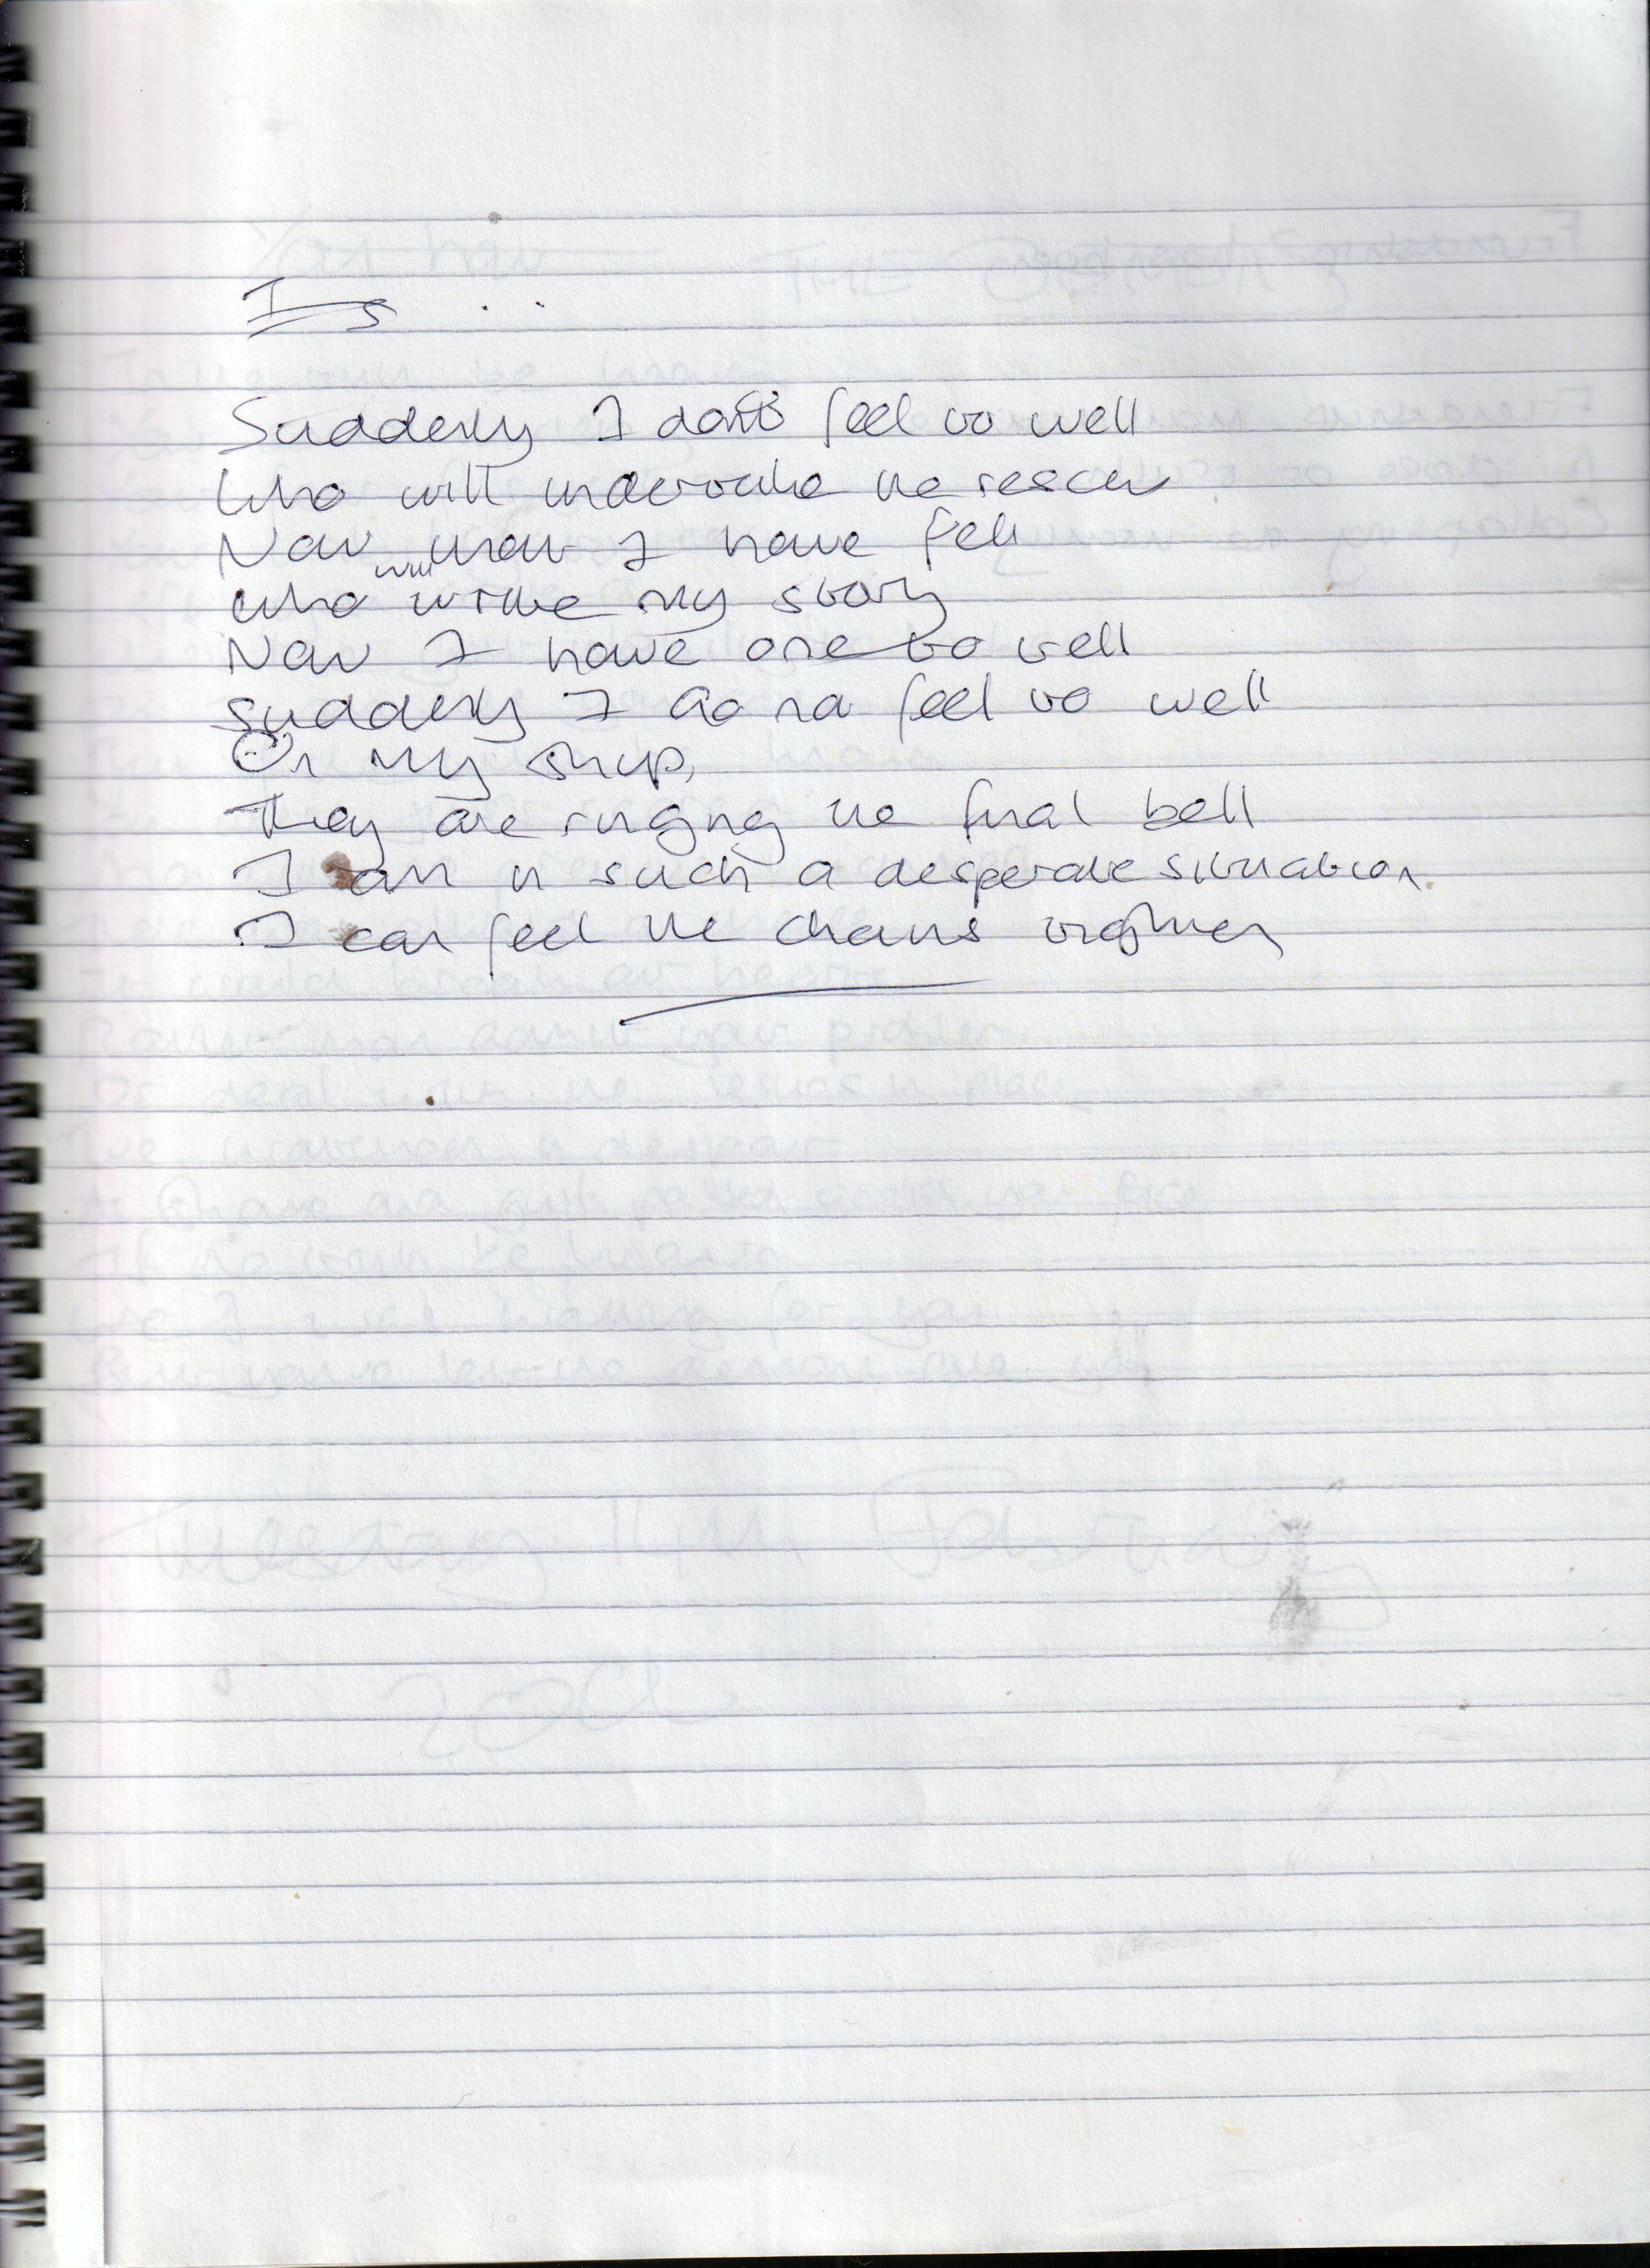 Is ...
Suddenly I don't feel to well
Who will undertake the rescue
Now that I have fell
Who will write my story
Now I have one to tell
Suddenly I do not feel to well
On my ship,
They are ringing the final bell
I am in such a desperate situation
I can feel the chains tighten